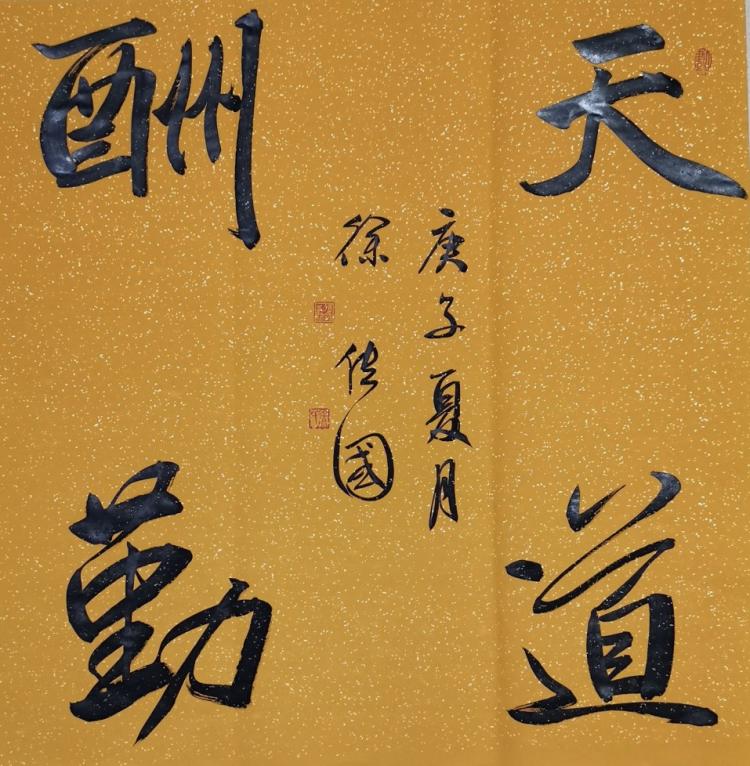 天道
酬勤
庚子夏月
徐传國